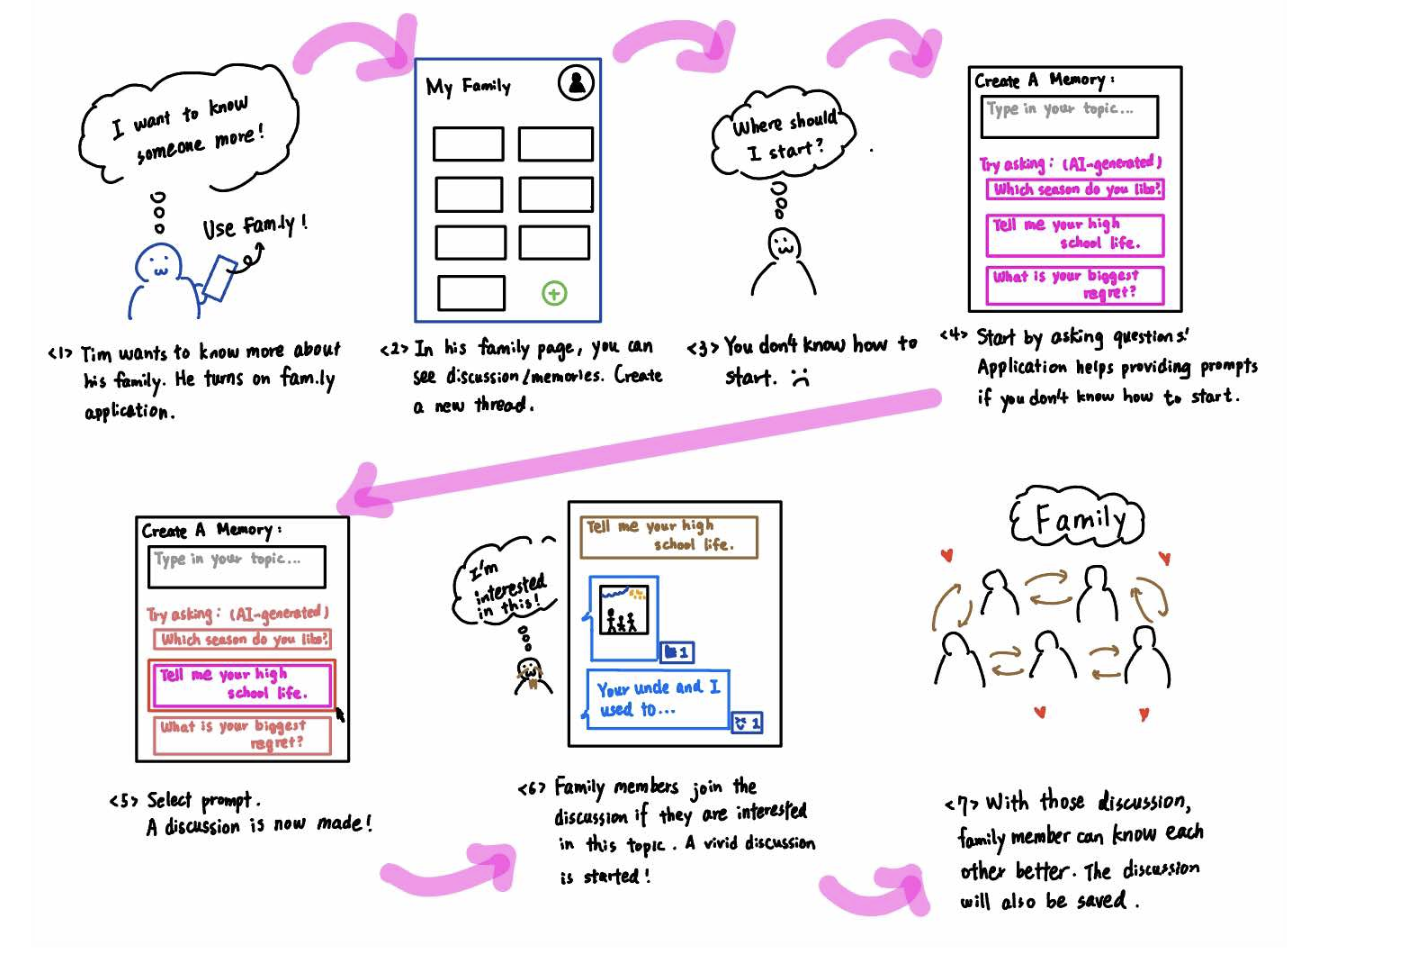 I want to know
someone more!
Use Fam.ly!
<1> Tim wants to know more about
his family. He turns on fam.ly
application.
My Family
<2> In his family page, you can
see discussion/memories. Create
a new thread.
Where should
I start?
<3> You don't know how to
start. :(
Create A Memory:
Type in your topic...
Try asking: (AI-generated)
Which season do you like?
Tell me your high
school life.
What is your biggest
regret?
<4> Start by asking questions!
Application helps providing prompts
if you don't know how to start.
Create A Memory:
Type in your topic...
Try asking: (AI-generated)
Which season do you like?
Tell me your high
school life.
What is your biggest
regret?
<5> Select prompt.
A discussion is now made!
I'm
interested
in this!
Tell me your high
school life.
1
Your uncle and I
used to...
1
<6> Family members join the
discussion if they are interested
in this topic. A vivid discussion
is started!
Family
<7> With those discussion,
family member can know each
other better. The discussion
will also be saved.